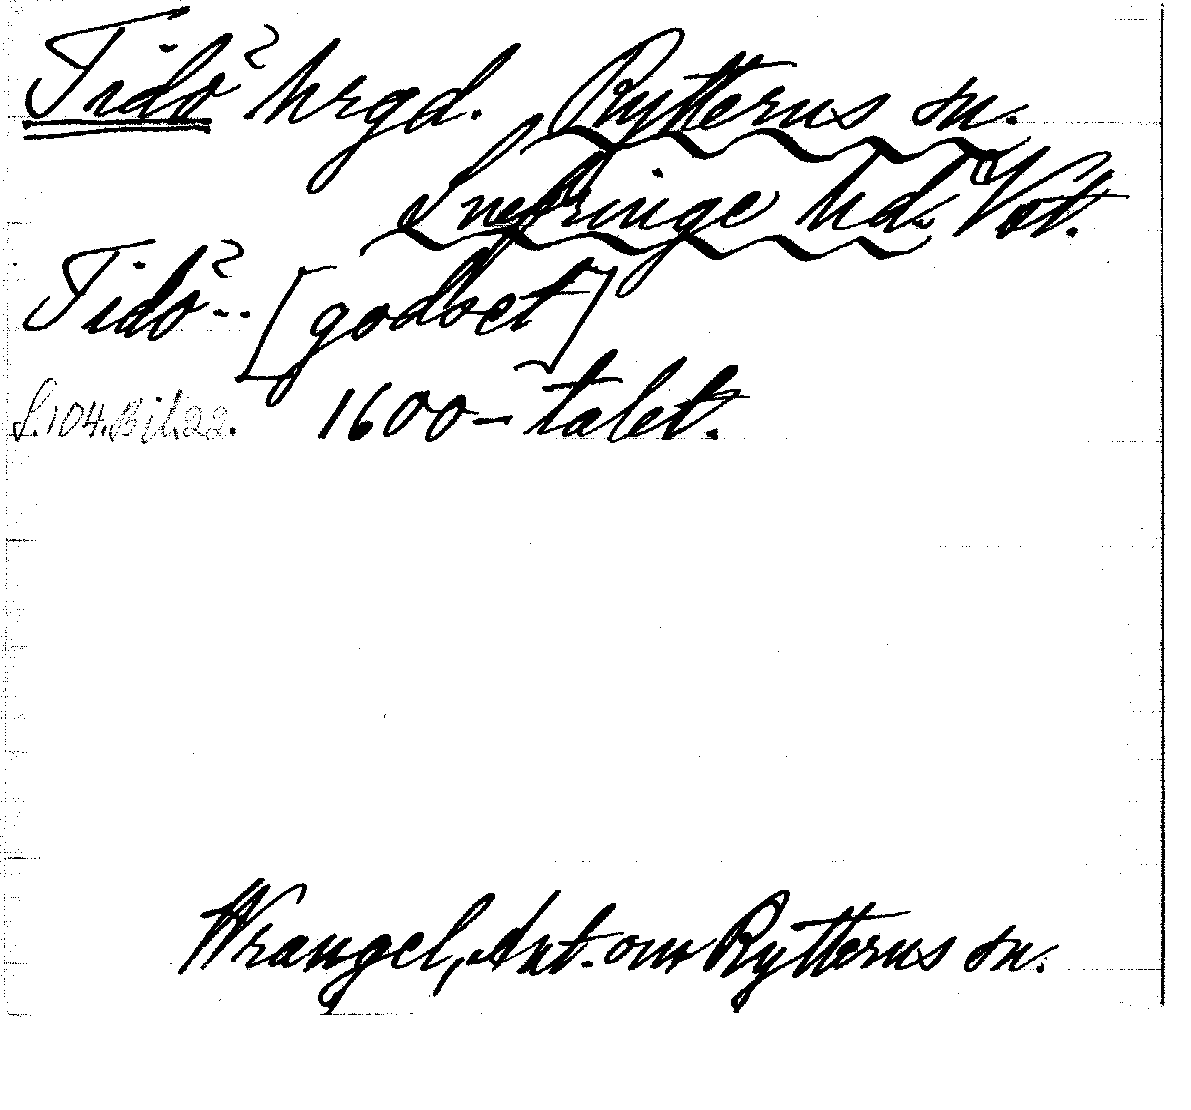 Tidö hrgd. Rytterns sn.
Snefringe hd. Vst.
Tidö-- [godset]
S.104.Bil.22. 1600-talet.
Wrangel, Ant. om Rytterns sn.